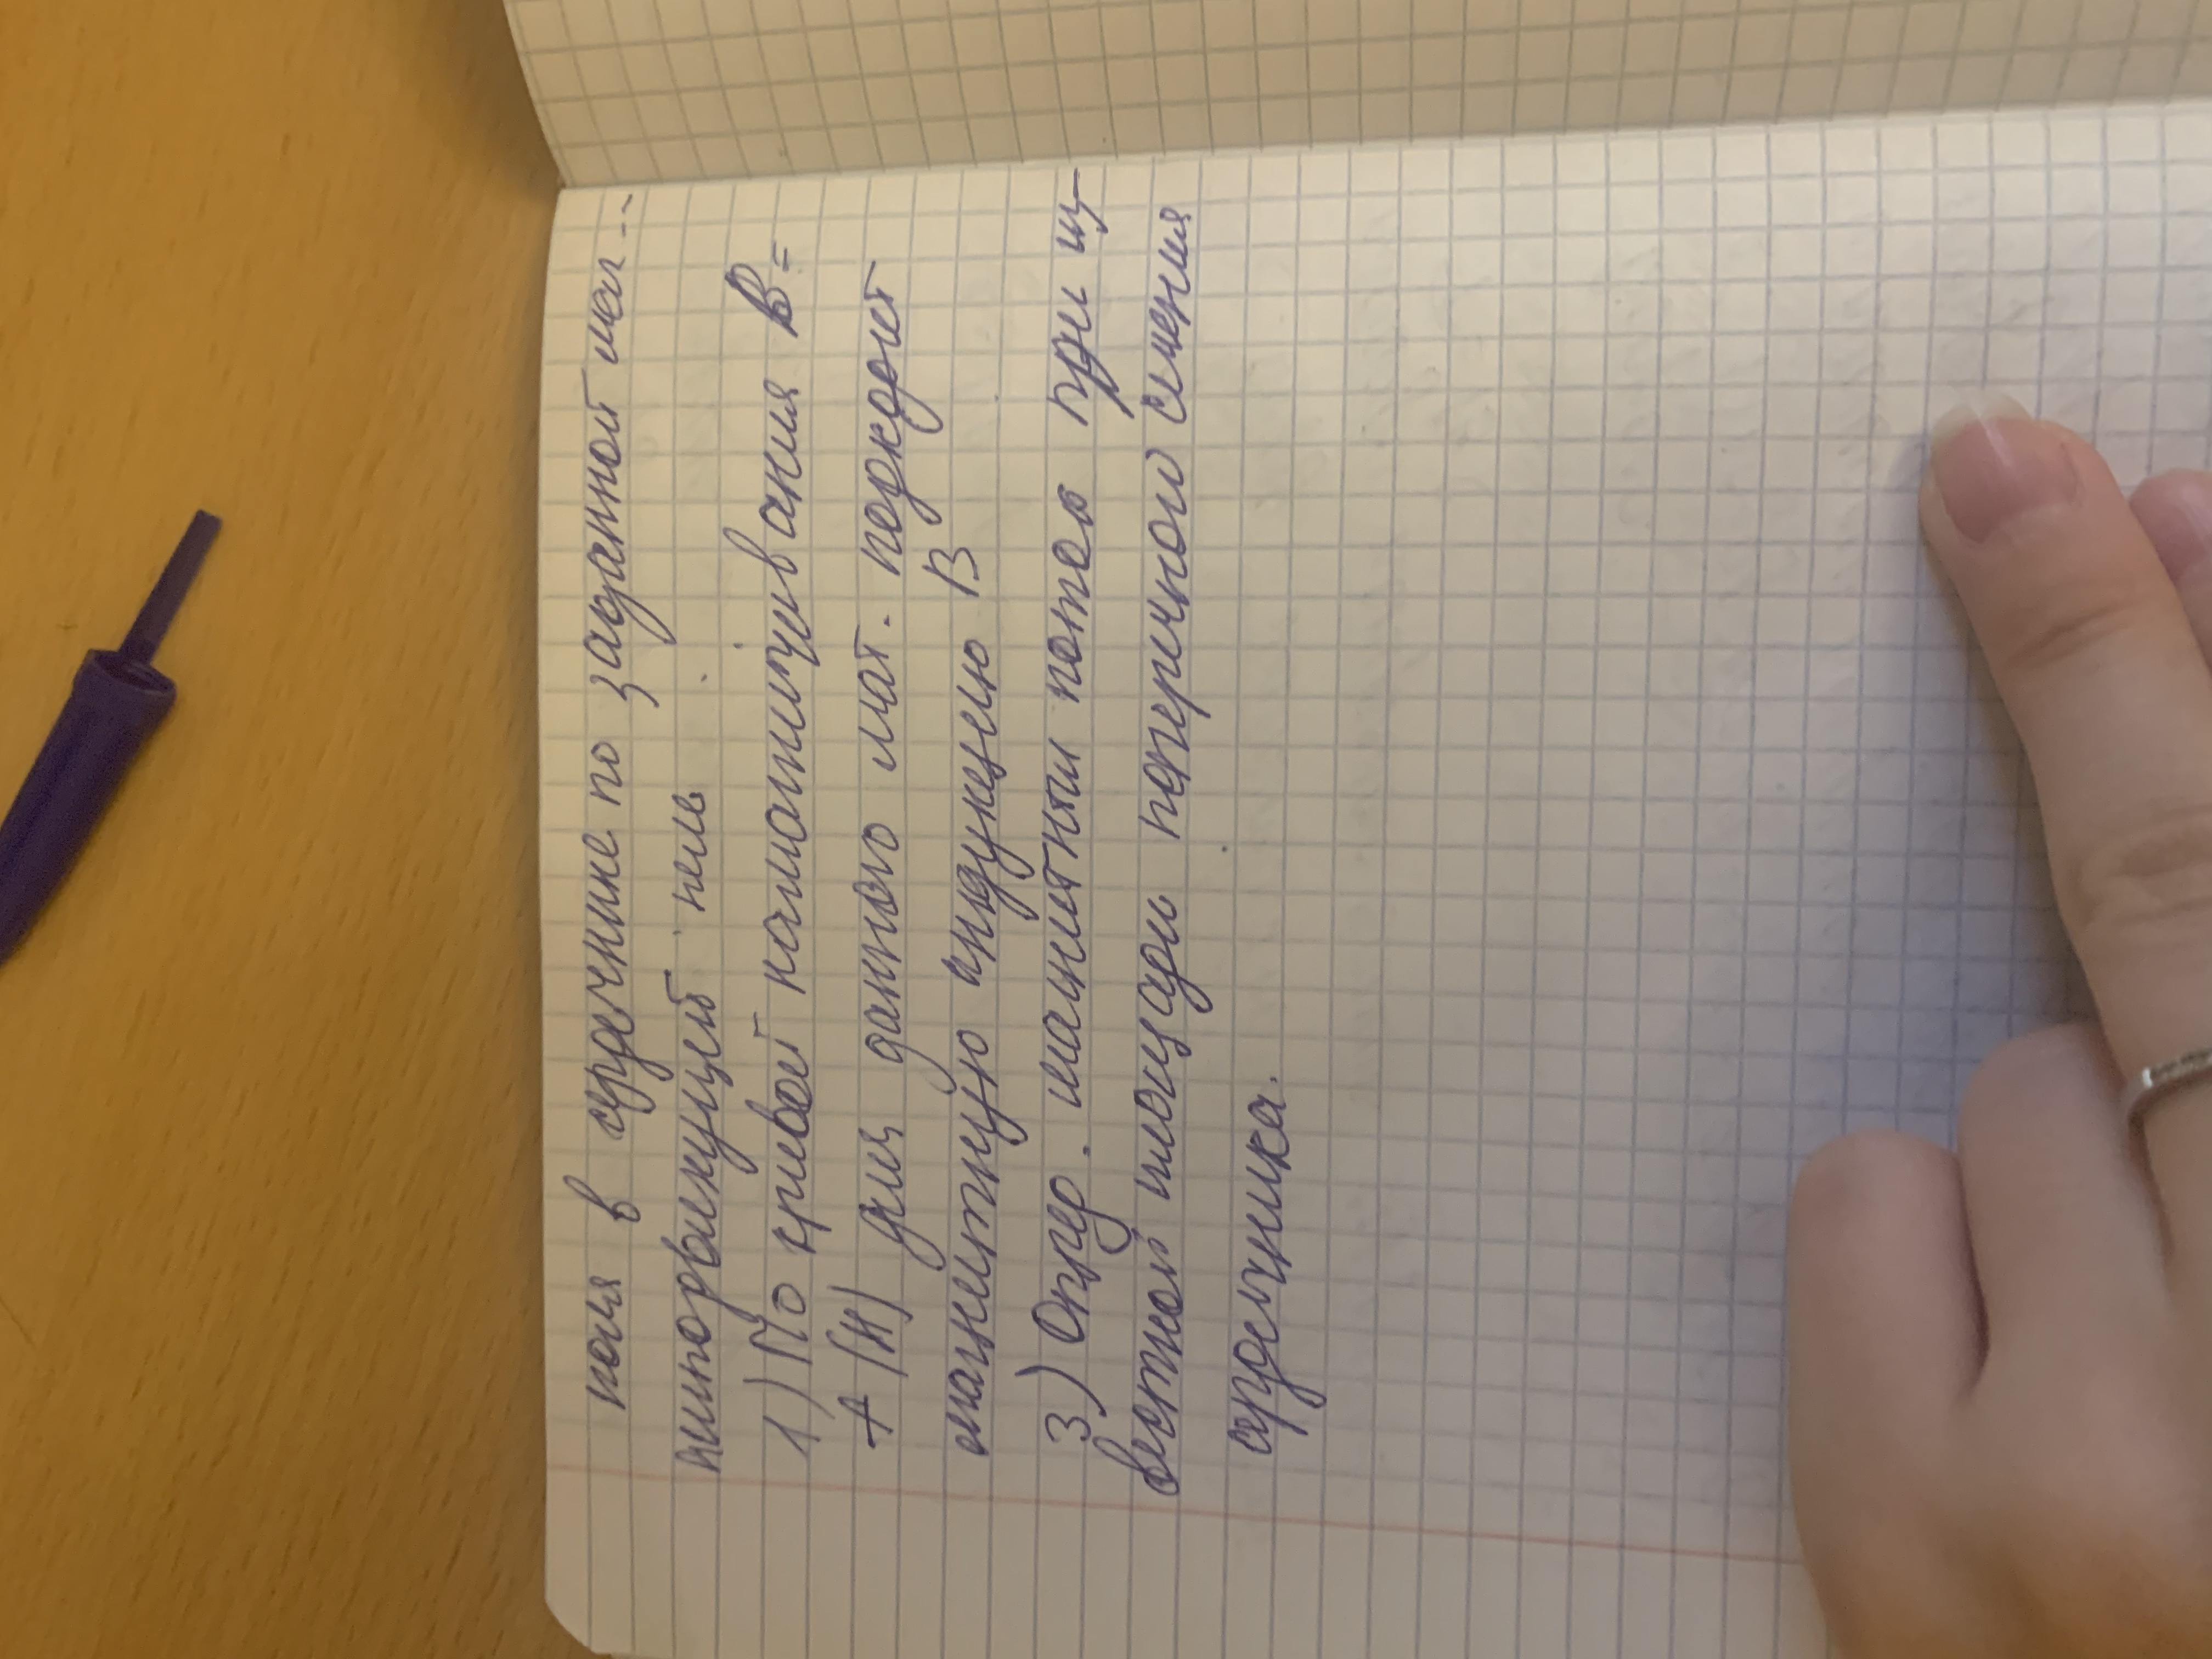 поля в сердечнике по заданной маг...
движущей
1) По кривой намагничивания B=
f(H) для данного мат. подкорет
магнитную индукцию B
3) Опер. магнитный поток при из-
вестной площади поперечного сичения
сердечника.